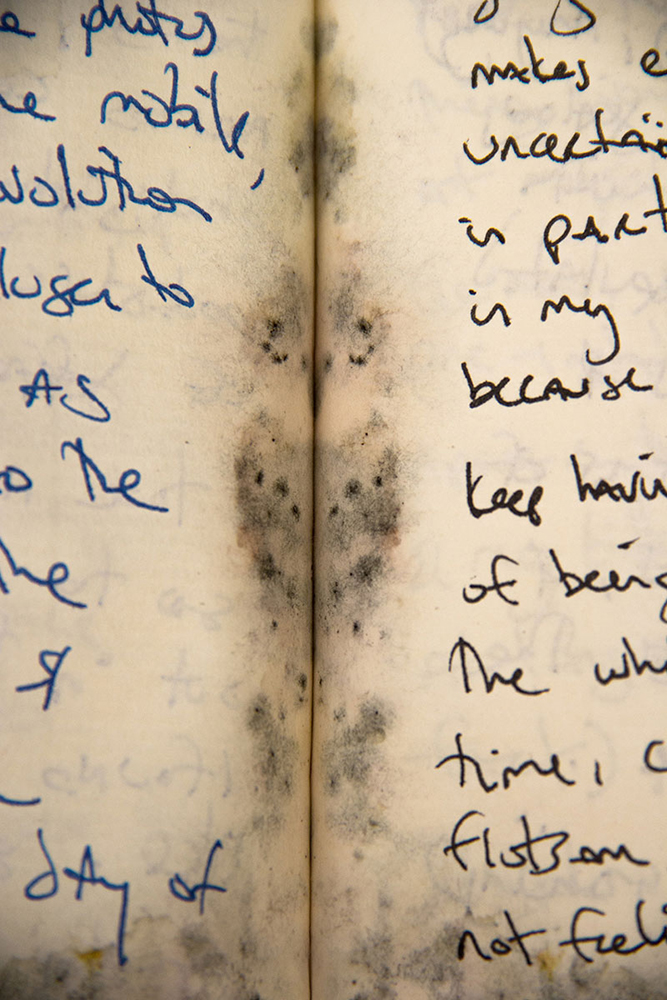 photos
mobile,
to
As
the
the
I
day of
makes e
uncertain
in part
in my
because
keep havin
of being
the wh
time, c
flotsam
not feeli